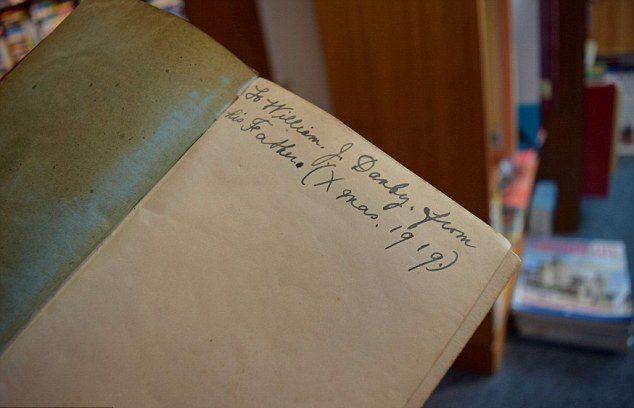 To William. J. Danby. from
his Father. (Xmas. 1919.)